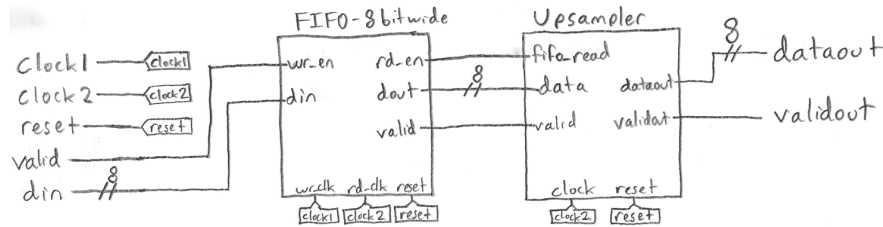 FIFO-8bitwide
Upsampler
Clock1
clock1
Clock2
clock2
reset
reset
valid
din
8
wr_en
rd_en
din
dout
valid
wr_clk
rd_clk
reset
clock1
clock2
reset
8
fifo_read
data
dataout
valid
validout
clock
reset
clock2
reset
8
dataout
validout